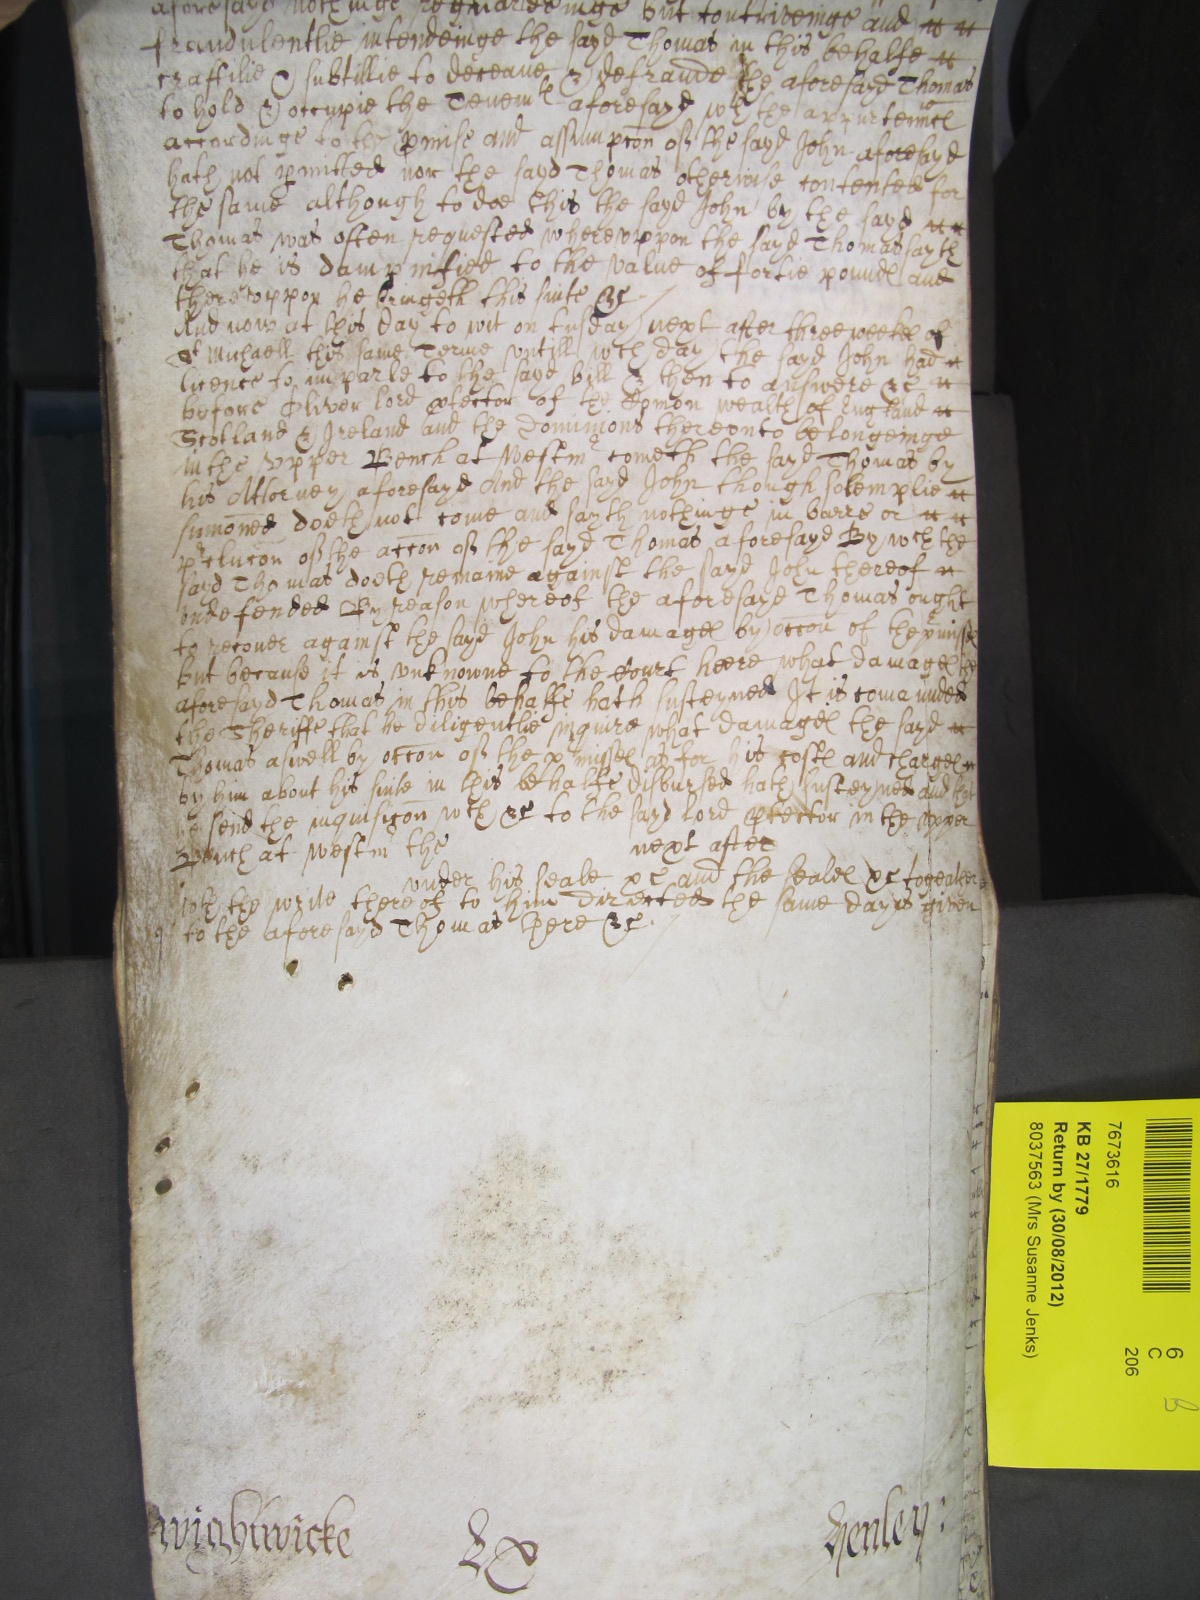 aforesayd nothinge regardeinge but contriveinge and
fraudulentlie intendeinge the sayd Thomas in this behalfe
craftilie & subtillie to deceave & defraude the aforesayd Thomas
to hold & occupie the Tenemts aforesayd wth the appurtennces
accordinge to the pmise and assumpcon of the sayd John aforesayd
hath not pmitted nor the sayd Thomas otherwise contented for
the same although to doe this the sayd John by the sayd
Thomas was often requested whereuppon the sayd Thomas sayth
that he is dampnified to the value of fortie pounds and
thereuppon he bringeth this suite &c
And now at this day to wit on tusday next after three weekes of
St Michaell this same Terme untill wch day the sayd John had
licence to imparle to the sayd bill & then to answere &c
before Oliver lord ptector of the Comon wealth of England
Scotland & Ireland and the Dominions thereonto belongeinge
in the upper Bench at Westmr cometh the sayd Thomas by
his Attorney aforesayd And the sayd John though solemplie
sumoned doeth not come and sayth nothinge in barre or
pclucon of the accon of the sayd Thomas aforesayd By wch the
sayd Thomas doeth remaine against the sayd John thereof
undefended By reason whereof the aforesayd Thomas ought
to recover against the sayd John his damages by occon of the pmisses
but because it is unknowne to the Court heere what damages the
aforesayd Thomas in this behalfe hath susteyned It is comaunded
the Sheriffe that he diligentlie inquire what damages the sayd
Thomas aswell by occon of the pmisses as for his costs and charges
by him about his suite in this behalfe disbursed hath susteyned and that
he send the inquisicon wch &c to the sayd lord ptector in the upper
Bench at Westmr the next after
under his seale &c and the seales &c togeather
wth the write thereof to him directed the same day is given
to the aforesayd Thomas here &c
wightwicke
Henley
7673616
KB 27/1779
Return by (30/08/2012)
8037563 (Mrs Susanne Jenks)
6
C
206
B